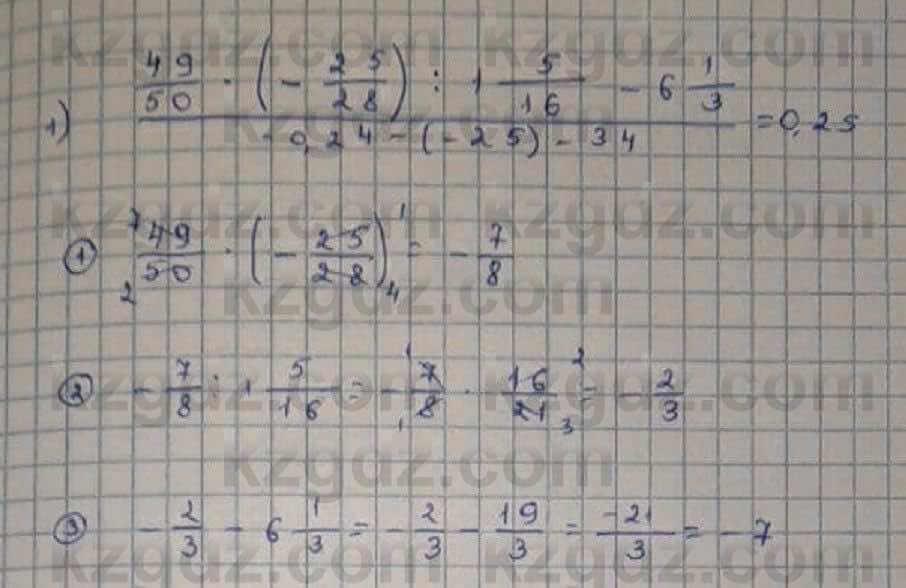 kzgdz.com kzgdz.com
1) (49/50 · (− 25/28) : 1 5/16 − 6 1/3) / (0,24 − (−25) − 34) = 0,25
kzgdz.com kzgdz.com
① 49/50 · (− 25/28) = − 7/8
7 2 1 4
kzgdz.com
② − 7/8 : 1 5/16 = − 7/8 · 16/21 = − 2/3
1 1 2 3
kzgdz.com kzgdz.com
kzgdz.com
③ − 2/3 − 6 1/3 = − 2/3 − 19/3 = −21/3 = −7
kzgdz.com kzgdz.com